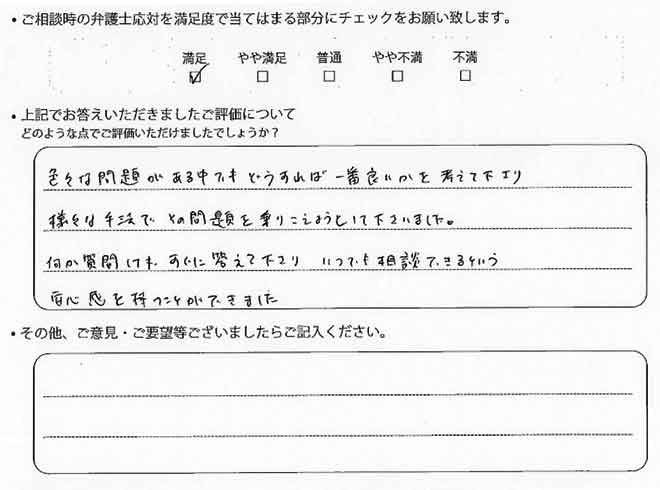 ・ご相談時の弁護士応対を満足度で当てはまる部分にチェックをお願い致します。
満足 やや満足 普通 やや不満 不満
☑ □ □ □ □
・上記でお答えいただきましたご評価について
どのような点でご評価いただけましたでしょうか？
色々な問題がある中でもどうすれば一番良いかを考えて下さり
様々な手法でその問題を乗りこえようとして下さいました。
何か質問しても すぐに答えて下さり いつでも相談できるという
安心感を持つことができました
・その他、ご意見・ご要望等ございましたらご記入ください。